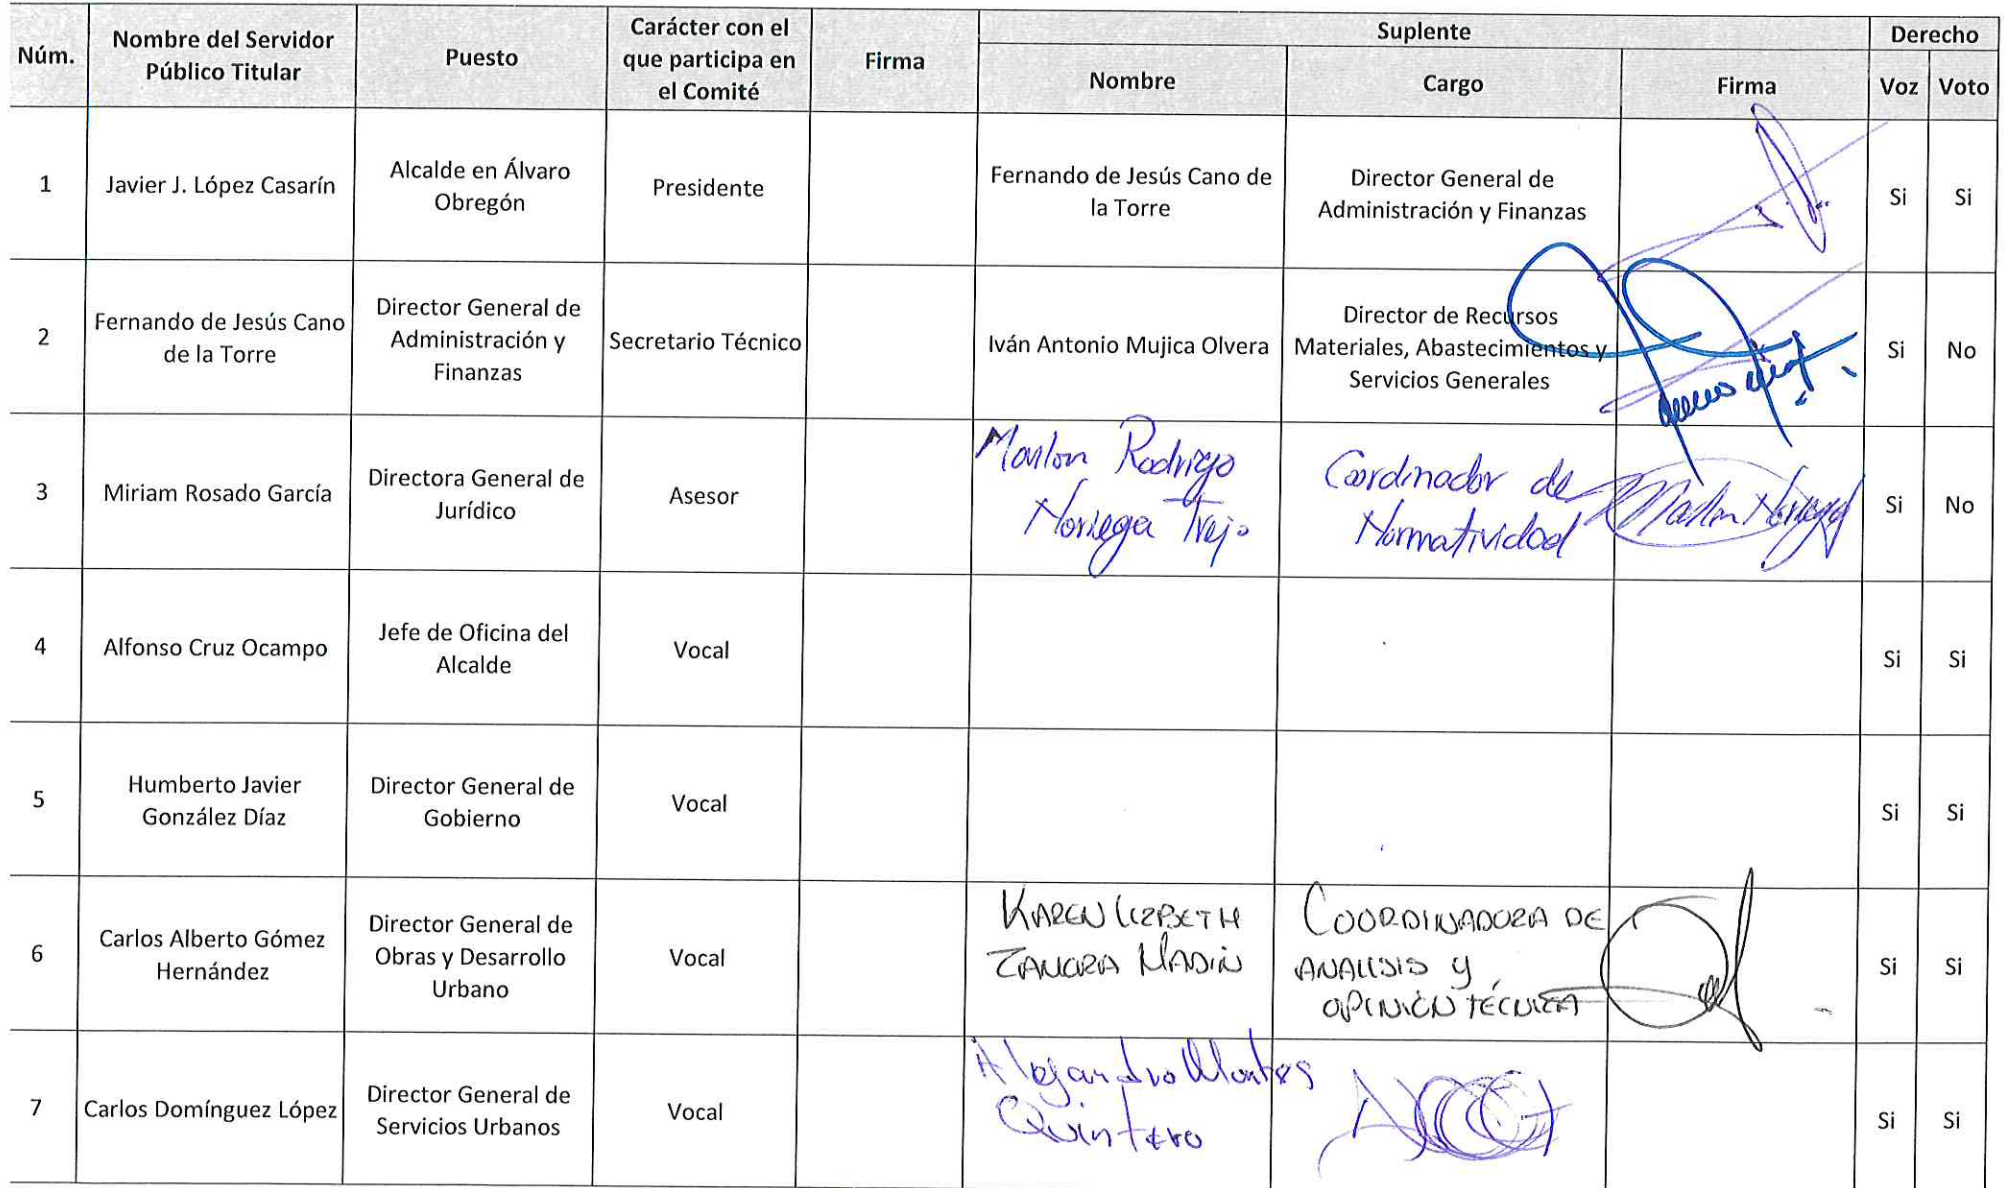 Núm.
Nombre del Servidor
Público Titular
Puesto
Carácter con el
que participa en
el Comité
Firma
Suplente
Nombre
Cargo
Firma
Derecho
Voz
Voto
1
Javier J. López Casarín
Alcalde en Álvaro
Obregón
Presidente
Fernando de Jesús Cano de
la Torre
Director General de
Administración y Finanzas
Si
Si
2
Fernando de Jesús Cano
de la Torre
Director General de
Administración y
Finanzas
Secretario Técnico
Iván Antonio Mujica Olvera
Director de Recursos
Materiales, Abastecimientos y
Servicios Generales
Si
No
3
Miriam Rosado García
Directora General de
Jurídico
Asesor
Marlon Rodrigo
Noriega Trejo
Coordinador de
Normatividad
Marlon Noriega
Si
No
4
Alfonso Cruz Ocampo
Jefe de Oficina del
Alcalde
Vocal
Si
Si
5
Humberto Javier
González Díaz
Director General de
Gobierno
Vocal
Si
Si
6
Carlos Alberto Gómez
Hernández
Director General de
Obras y Desarrollo
Urbano
Vocal
KAREN LIZBETH
COORDINADORA DE
ANALISIS Y
OPINIÓN TÉCNICA
Si
Si
7
Carlos Domínguez López
Director General de
Servicios Urbanos
Vocal
Alejandro Montes
Quintero
Si
Si